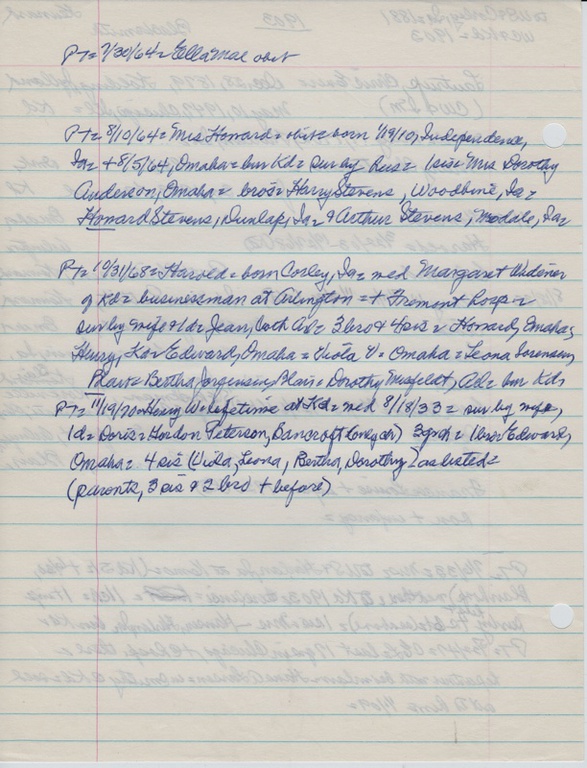 PT= 7/30/64= Ella Mae obit
PT= 8/10/64= Mrs Howard= obit= born 1/19/10, Independence,
Ia= + 8/5/64, Omaha= bur Kd= sur by hus= 1 sis= Mrs Dorothy
Anderson, Omaha= bros= Harry Stevens, Woodbine, Ia=
Howard Stevens, Dunlap, Ia= & Arthur Stevens, Modale, Ia=
PT= 10/31/68= Harold= born Corley, Ia= med Margaret Widener
of Kd= businessman at Arlington= + Fremont hosp=
sur by wife & 1d= Jean, both Ar= 3 bro & 4 sis= Howard, Omaha;
Henry, Kd= Edward, Omaha= Viola V= Omaha= Leona Sorensen,
Blair= Bertha Jorgensen, Blair= Dorothy Misfeldt, = bur Kd=
PT= 11/19/70= Henry W= lifetime at Kd= med 8/18/33= sur by wife,
1d= Doris= Gordon Peterson, Bancroft (only ch) 3 gch= 1 bro= Edward,
Omaha= 4 sis (Viola, Leona, Bertha, Dorothy) as listed=
(parents, 3 sis & 2 bro + before)